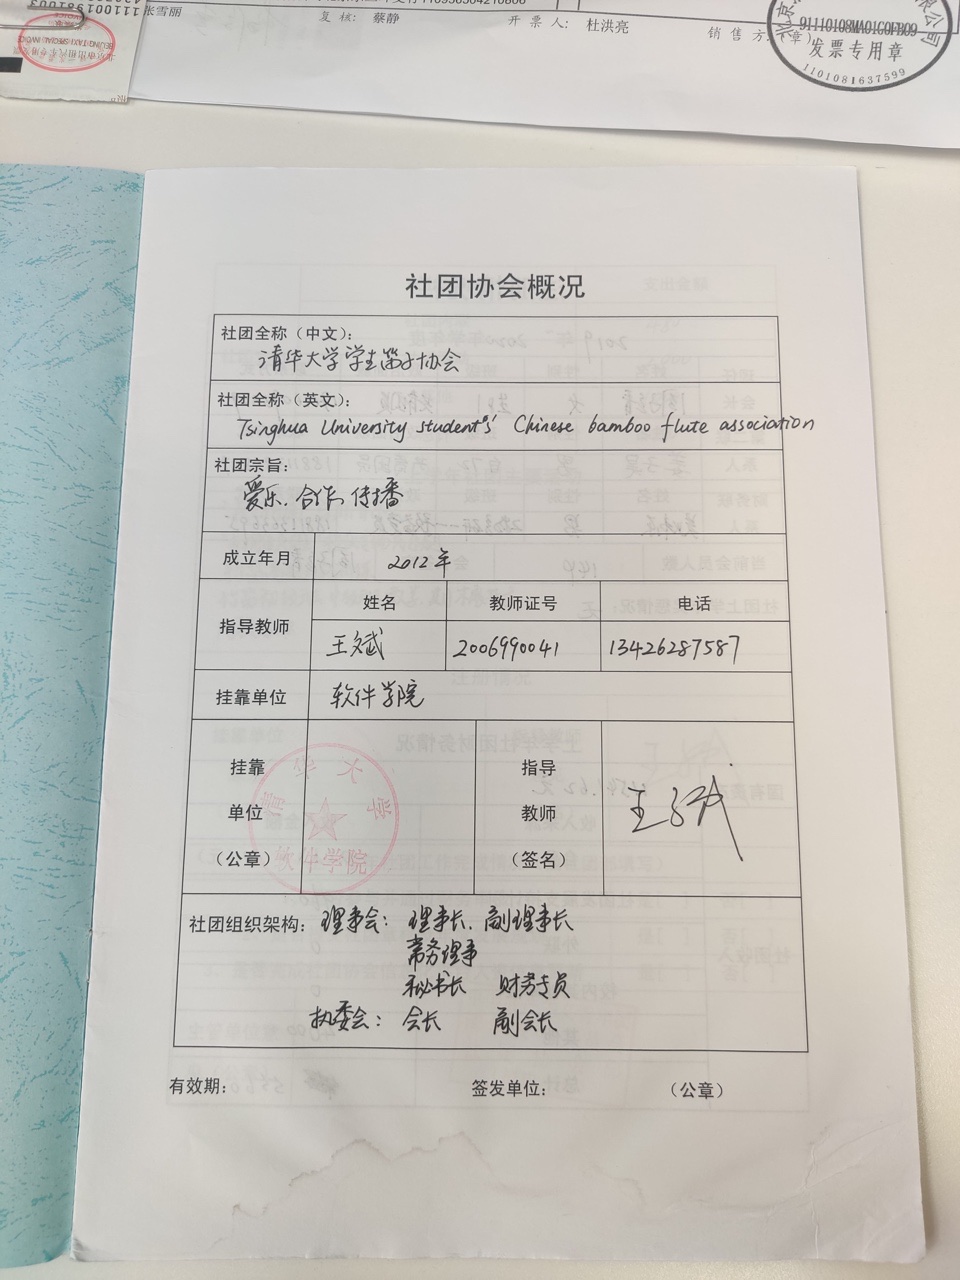 张雪丽
复核: 蔡静
开票人: 杜洪亮
销售方(章)
91110108MA01C0FB09
发票专用章
1101081637599
社团协会概况
社团全称（中文）：
清华大学学生笛子协会
社团全称（英文）：
Tsinghua University students' Chinese bamboo flute association
社团宗旨：
爱乐、合作、传播
成立年月 2012年
指导教师 姓名 教师证号 电话
王斌 2006990041 13426287587
挂靠单位 软件学院
挂靠
单位
（公章）
清华大学
软件学院
指导
教师
（签名）
王斌
社团组织架构： 理事会： 理事长、副理事长
常务理事
秘书长 财务专员
执委会： 会长 副会长
有效期： 签发单位： （公章）